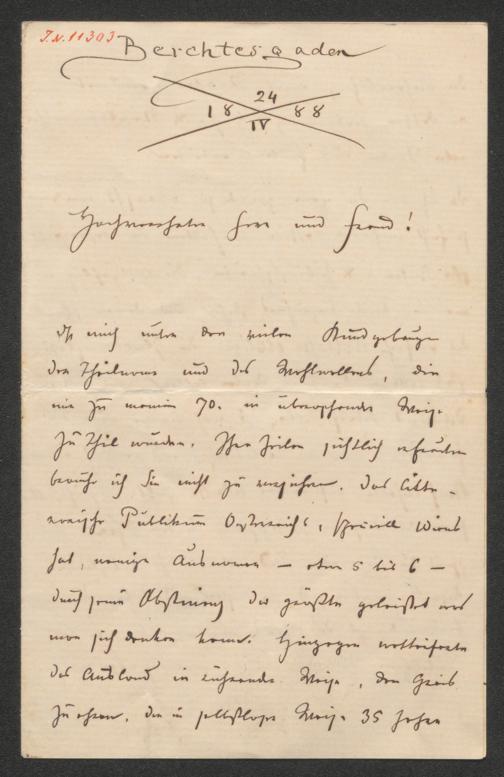 J.N. 11303
Berchtesgaden
18 24/IV 88
Hochverehrter Herr und Freund!
Daß mich unter den vielen Kundgebungen
der Theilname und des Wohlwollens, die
mir zu meinem 70. in überraschender Weise
zu Theil wurden, Ihre Zeilen sichtlich erfreuten
brauche ich Sie nicht zu versichern. Das litte-
rarische Publikum Oesterreichs, speciell Wiens
hat, wenige Ausnamen — etwa 5 bis 6 —
durch seine Abstinenz das größte geleistet was
man sich denken kann. Hingegen wetteiferte
das Ausland in rührender Weise, den Greis
zu ehren, der in selbstloser Weise 35 Jahre